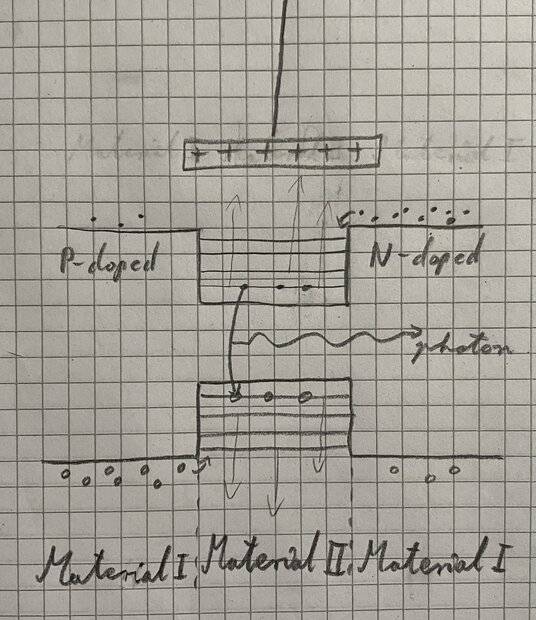 + + + + + +
P-doped N-doped
photon
Material I Material II Material I